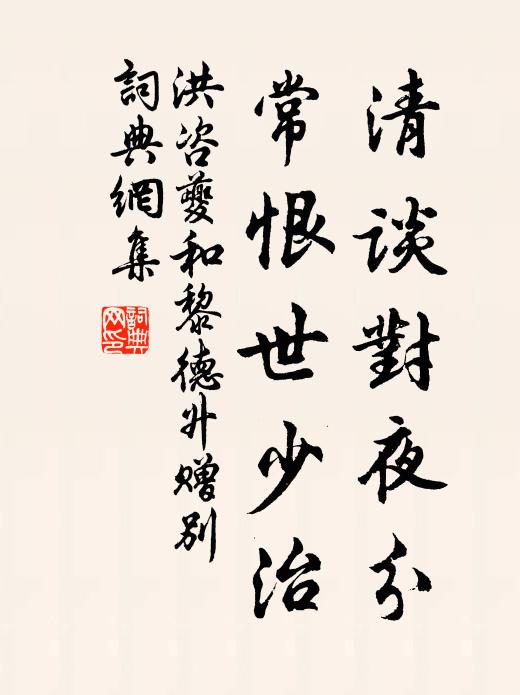 清談對夜分
常恨世少治
洪咨夔和黎德升贈別
詞典網集
詞典网印